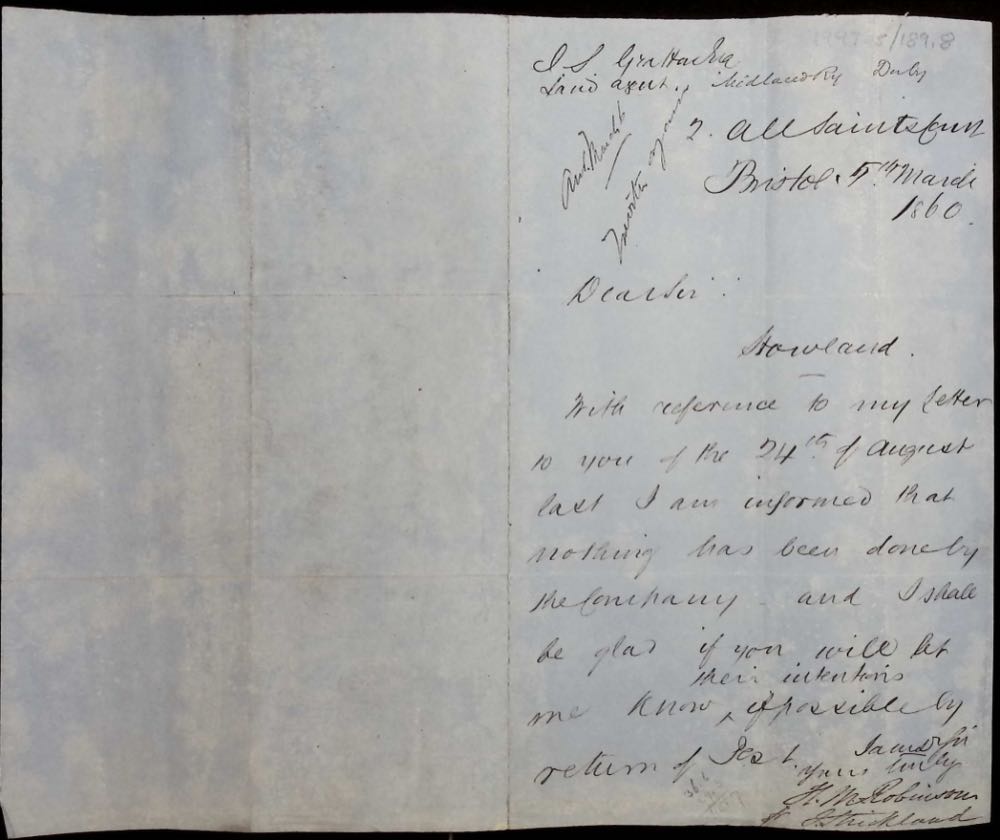 1997-25/189.8
J S
Land agent. Midland Ry Derby
2. All Saints Court
Bristol. 5th March
1860.
Dear Sir
Howland.
With reference to my letter
to you of the 24th of August
last I am informed that
nothing has been done by
the Company and I shall
be glad if you will let
their intentions
me know ‸ if possible by
return of Post. I am Dr Sir
yours truly
H. M. Robinson
Strickland